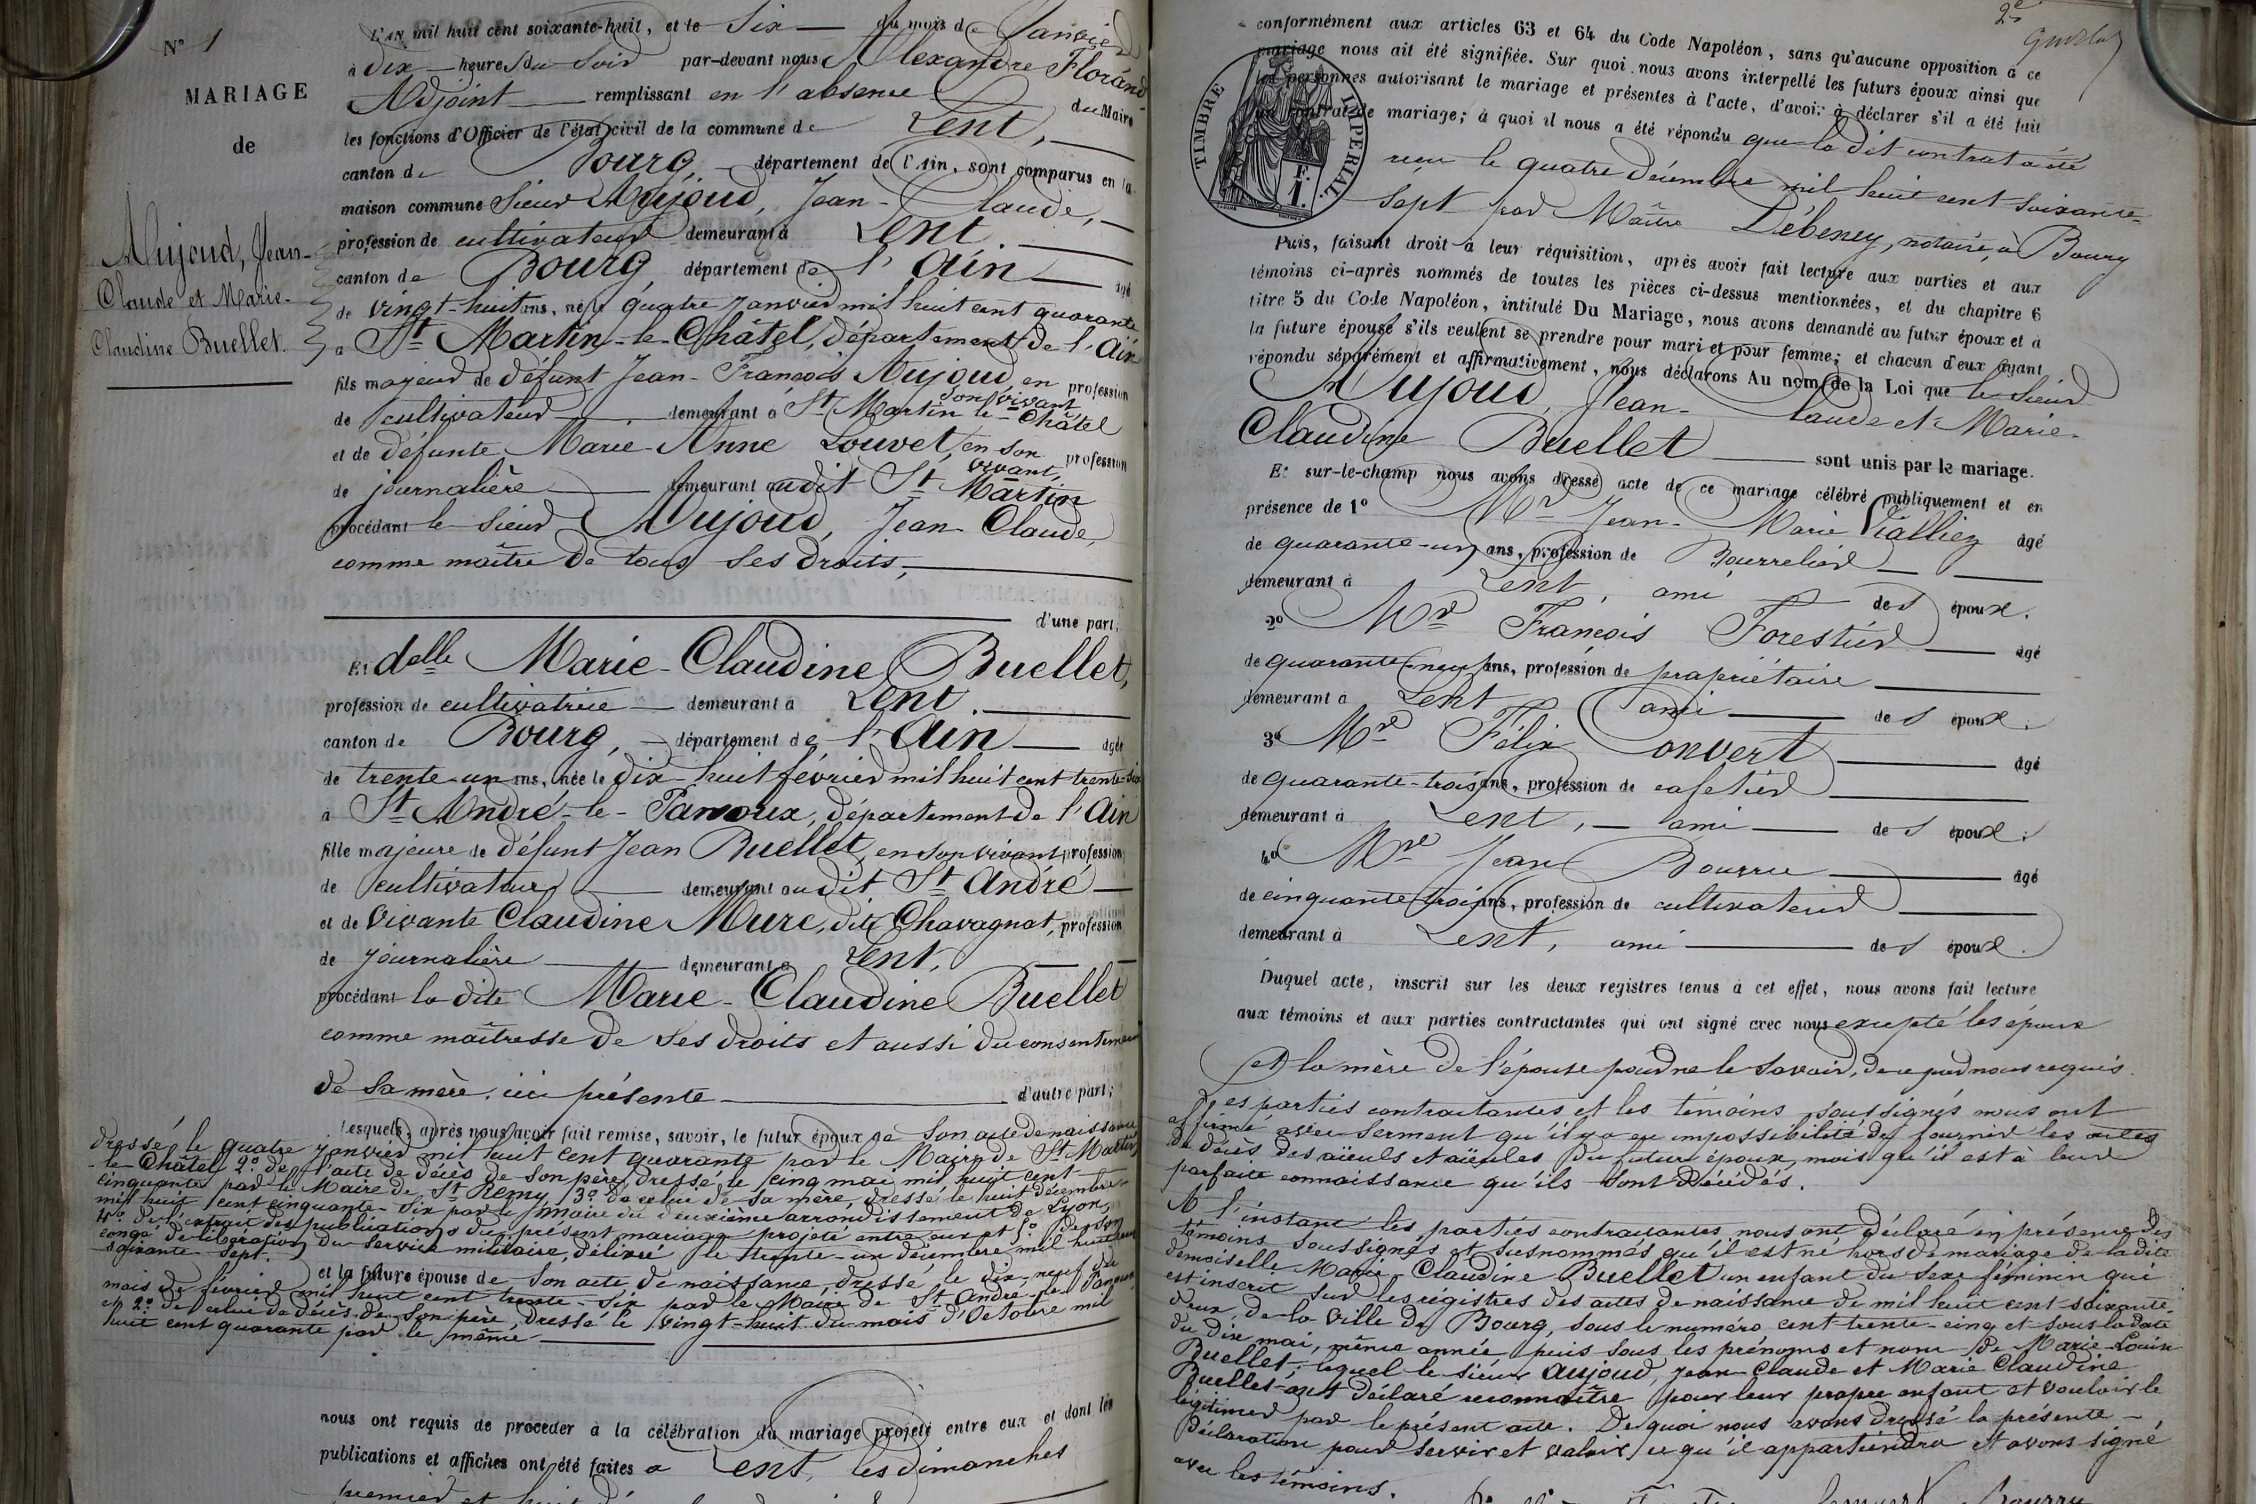 N° 1
MARIAGE
de
Aujoud, Jean-
Claude et Marie-
Claudine Buellet.
L'AN mil huit cent soixante-huit, et le Six du mois de Janvier
à dix heures du Soir par-devant nous Alexandre Florand
Adjoint remplissant en l'absence du Maire
les fonctions d'Officier de l'état civil de la commune de Lent,
canton de Bourg, département de l'Ain, sont comparus en la
maison commune Sieur Aujoud, Jean-Claude,
profession de cultivateur demeurant à Lent.
canton de Bourg département de l'Ain âgé
de vingt-huit ans, né le quatre janvier mil huit cent quarante
à St Martin-le-Châtel, département de l'Ain
fils majeur de défunt Jean-François Aujoud, en son vivant profession
de cultivateur demeurant à St Martin le Châtel
et de défunte Marie-Anne Louvet, en son vivant, profession
de journalière demeurant audit St Martin
procédant le Sieur Aujoud, Jean-Claude,
comme maître de tous ses droits,
d'une part,
Et delle Marie-Claudine Buellet,
profession de cultivatrice demeurant à Lent.
canton de Bourg, département de l'Ain âgée
de trente-un ans, née le dix-huit février mil huit cent trente-six
à St André-le-Panoux, département de l'Ain
fille majeure de défunt Jean Buellet, en son vivant, profession
de cultivateur demeurant audit St André
et de vivante Claudine Mure, dite Chavagnat, profession
de journalière demeurant à Lent,
procédant la dite Marie-Claudine Buellet
comme maîtresse de ses droits et aussi du consentement
de Sa mère, ici présente d'autre part;
Lesquels, après nous avoir fait remise, savoir, le futur époux de Son acte de naissance
dressé le quatre janvier mil huit cent quarante par le Maire de St Martin
-le-Châtel 2° de l'acte de décès de Son père, dressé le cinq mai mil huit cent
cinquante par le Maire de St Remy, 3° de celui de Sa mère, dressé le huit décembre
mil huit cent cinquante-six par le Maire du deuxième arrondissement de Lyon,
4° de l'extrait des publications du présent mariage projeté entre eux et 5° de son
congé de libération du Service militaire, délivré le trente-un décembre mil huit cent
soixante-sept.
et la future épouse de Son acte de naissance, dressé le dix-neuf du
mois de février mil huit cent trente-six par le Maire de St André-le-Panoux
et 2° de celui de décès de Son père, dressé le vingt-huit du mois d'Octobre mil
huit cent quarante par le même
nous ont requis de procéder à la célébration du mariage projeté entre eux et dont les
publications et affiches ont été faites à Lent, les dimanches
premier et huit
2e
conformément aux articles 63 et 64 du Code Napoléon, sans qu'aucune opposition à ce
mariage nous ait été signifiée. Sur quoi nous avons interpellé les futurs époux ainsi que
les personnes autorisant le mariage et présentes à l'acte, d'avoir à déclarer s'il a été fait
un contrat de mariage; à quoi il nous a été répondu que le dit contrat a été
reçu le quatre Décembre mil huit cent soixante-
sept par Maître Débeney, notaire, à Bourg
TIMBRE IMPERIAL.
1 F.
Puis, faisant droit à leur réquisition, après avoir fait lecture aux parties et aux
témoins ci-après nommés de toutes les pièces ci-dessus mentionnées, et du chapitre 6
titre 5 du Code Napoléon, intitulé Du Mariage, nous avons demandé au futur époux et à
la future épouse s'ils veulent se prendre pour mari et pour femme; et chacun d'eux ayant
répondu séparément et affirmativement, nous déclarons Au nom de la Loi que le Sieur
Aujoud, Jean-Claude et Marie-
Claudine Buellet sont unis par le mariage.
Et sur-le-champ nous avons dressé acte de ce mariage célébré publiquement et en
présence de 1° Mr Jean-Marie Vialliez âgé
de quarante-un ans, profession de Bourrelier
demeurant à Lent, ami des époux.
2° Mr François Forestier âgé
de quarante-neuf ans, profession de propriétaire
demeurant à Lent ami des époux.
3° Mr Félix Convert âgé
de quarante-trois ans, profession de cafetier
demeurant à Lent, ami des époux.
4° Mr Jean Bourru âgé
de cinquante-trois ans, profession de cultivateur
demeurant à Lent, ami des époux.
Duquel acte, inscrit sur les deux registres tenus à cet effet, nous avons fait lecture
aux témoins et aux parties contractantes qui ont signé avec nous excepté les époux
et la mère de l'épouse pour ne le Savoir, de ce par nous requis.
Les parties contractantes et les témoins soussignés nous ont
affirmé avec Serment qu'il y a eu impossibilité de fournir les actes
de décès des aïeuls et aïeules du futur époux, mais qu'il est à leur
parfaite connaissance qu'ils Sont décédés.
A l'instant les parties contractantes nous ont déclaré en présence des
témoins Soussignés et Susnommés qu'il est né hors de mariage de la dite
demoiselle Marie-Claudine Buellet un enfant du Sexe féminin qui
est inscrit Sur les régistres des actes de naissance de mil huit cent soixante-
deux de la ville de Bourg, sous le numéro cent trente-cinq et sous la date
du dix mai, même année puis sous les prénoms et nom de Marie-Louise
Buellet, lequel le sieur Aujoud, Jean-Claude et Marie Claudine
Buellet ont déclaré reconnaître pour leur propre enfant et vouloir le
légitimer par le présent acte. De quoi nous avons dressé la présente
Déclaration pour Servir et valoir ce qu'il appartiendra et avons signé
avec les témoins.
Convert Bourru